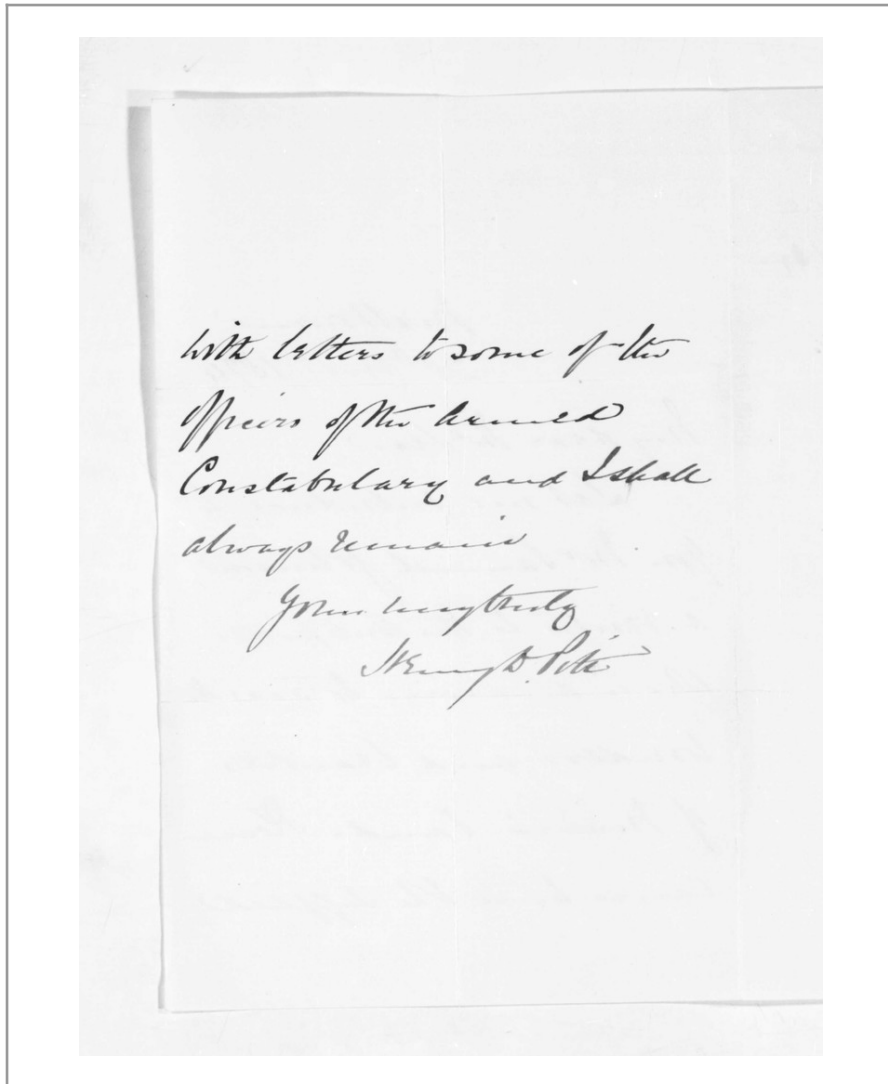 with letters to some of the
officers of the Armed
Constabulary and I shall
always remain
Yours very truly
Henry D. Pitt